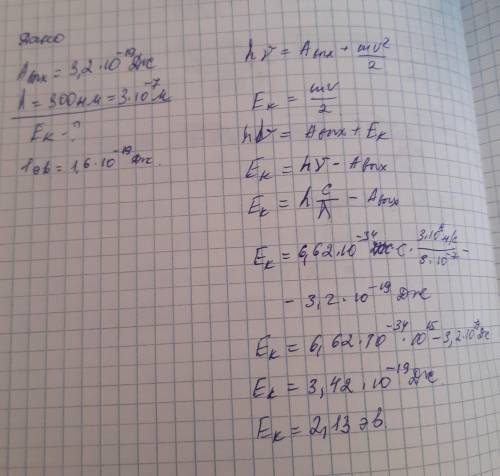 Дано
Aвых = 3,2·10⁻¹⁹Дж
λ = 300нм = 3·10⁻⁷м
Eк - ?
1эв = 1,6·10⁻¹⁹Дж.
hν = Aвых + mv²/2
Eк = mv/2
hν = Aвых + Eк
Eк = hν - Aвых
Eк = h c/λ - Aвых
Eк = 6,62·10⁻³⁴ Дж·с · 3·10⁸м/с / 3·10⁻⁷ -
- 3,2·10⁻¹⁹Дж
Eк = 6,62·10⁻³⁴·10¹⁵ - 3,2·10⁻¹⁹Дж
Eк = 3,42·10⁻¹⁹Дж
Eк = 2,13 эв